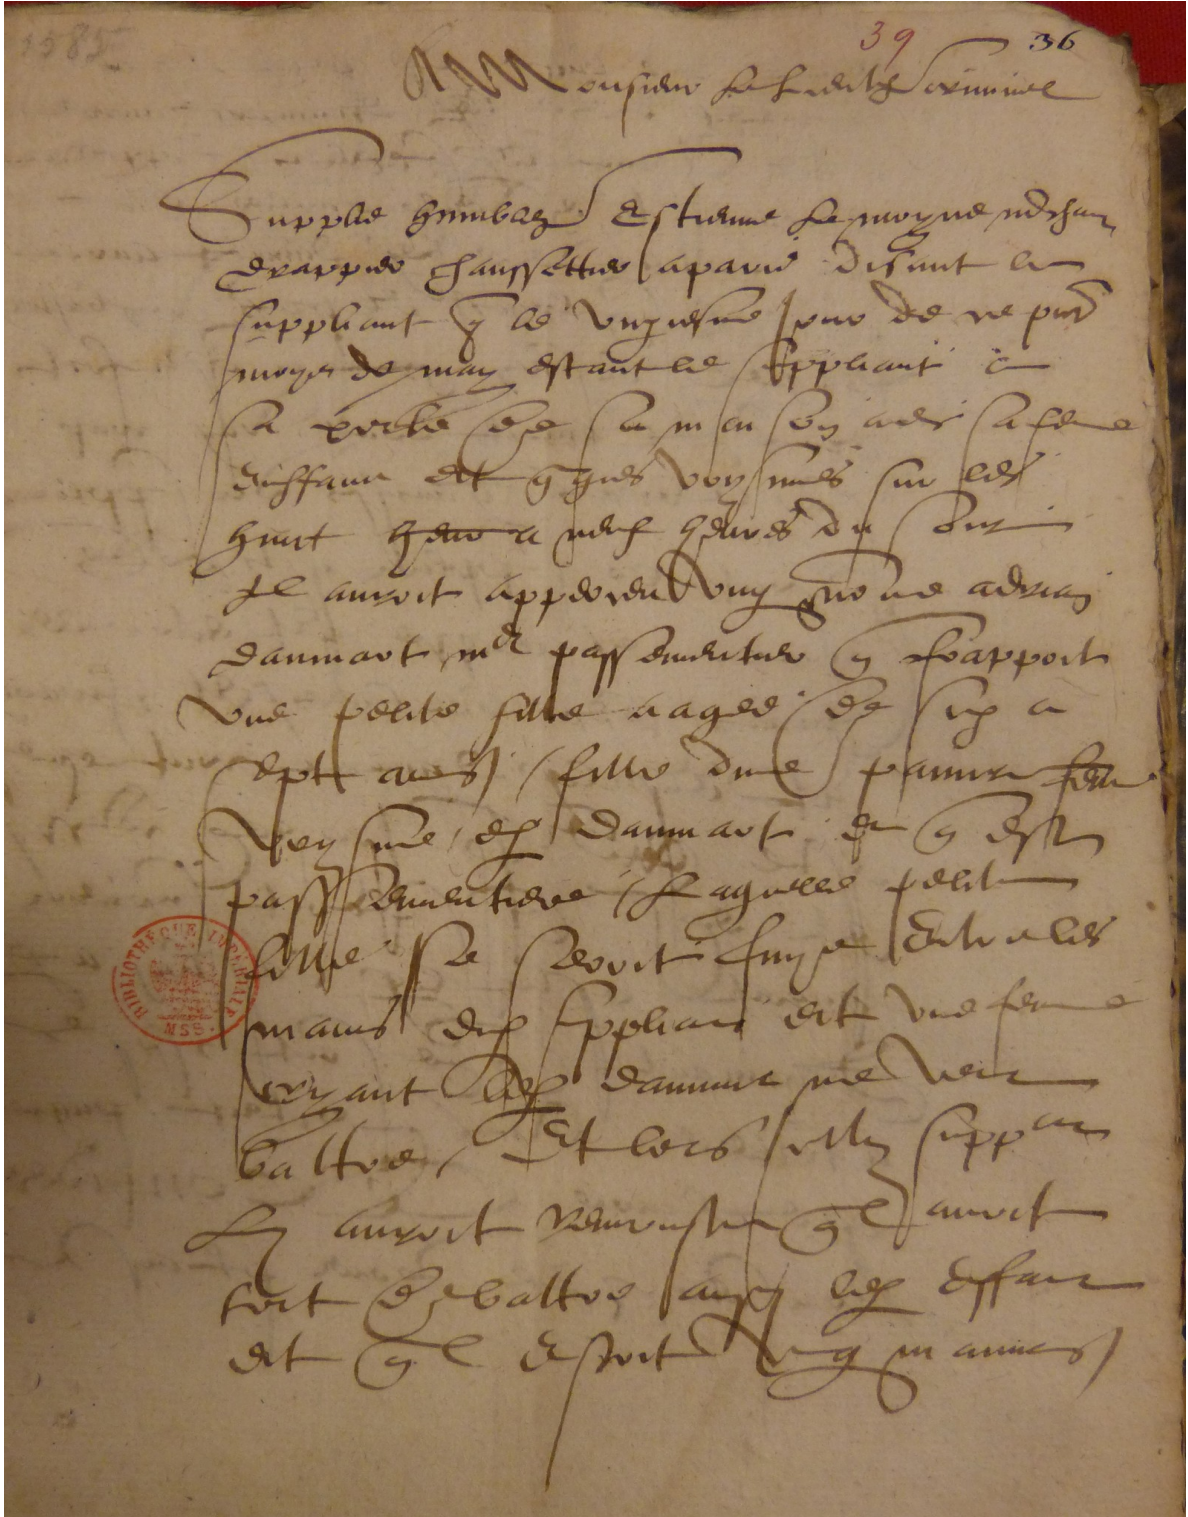 1585
39 36
A Monsieur le lieut criminel
Supplie humblemt Estienne Le moyne mdchant
drappier chaussettier a paris disant le
suppliant q le vingiesme jour de ce pnt
moys de may estant le suppliant a
sa porte de sa maison avec sa feme
enffans et qques voysines sur les
huit heur a neuf heures du soir
Il auroit apperceu ung nomme adrian
danmart me passementier q frappoit
une petite fille aagee de six a
sept ans fille dune pauvre feme
voysine dud danmart et q est
passementiere Laquelle petite
fille se seroit fuye entre les
mains dud suppliant et une feme
cryant led danmart me veut
battre, Et lors icelluy supplant
Luy auroit remonstre ql avoit
tort de battre ainsy led enffant
et ql estoit ung mauvais
BIBLIOTHEQUE IMPERIALE MSS.